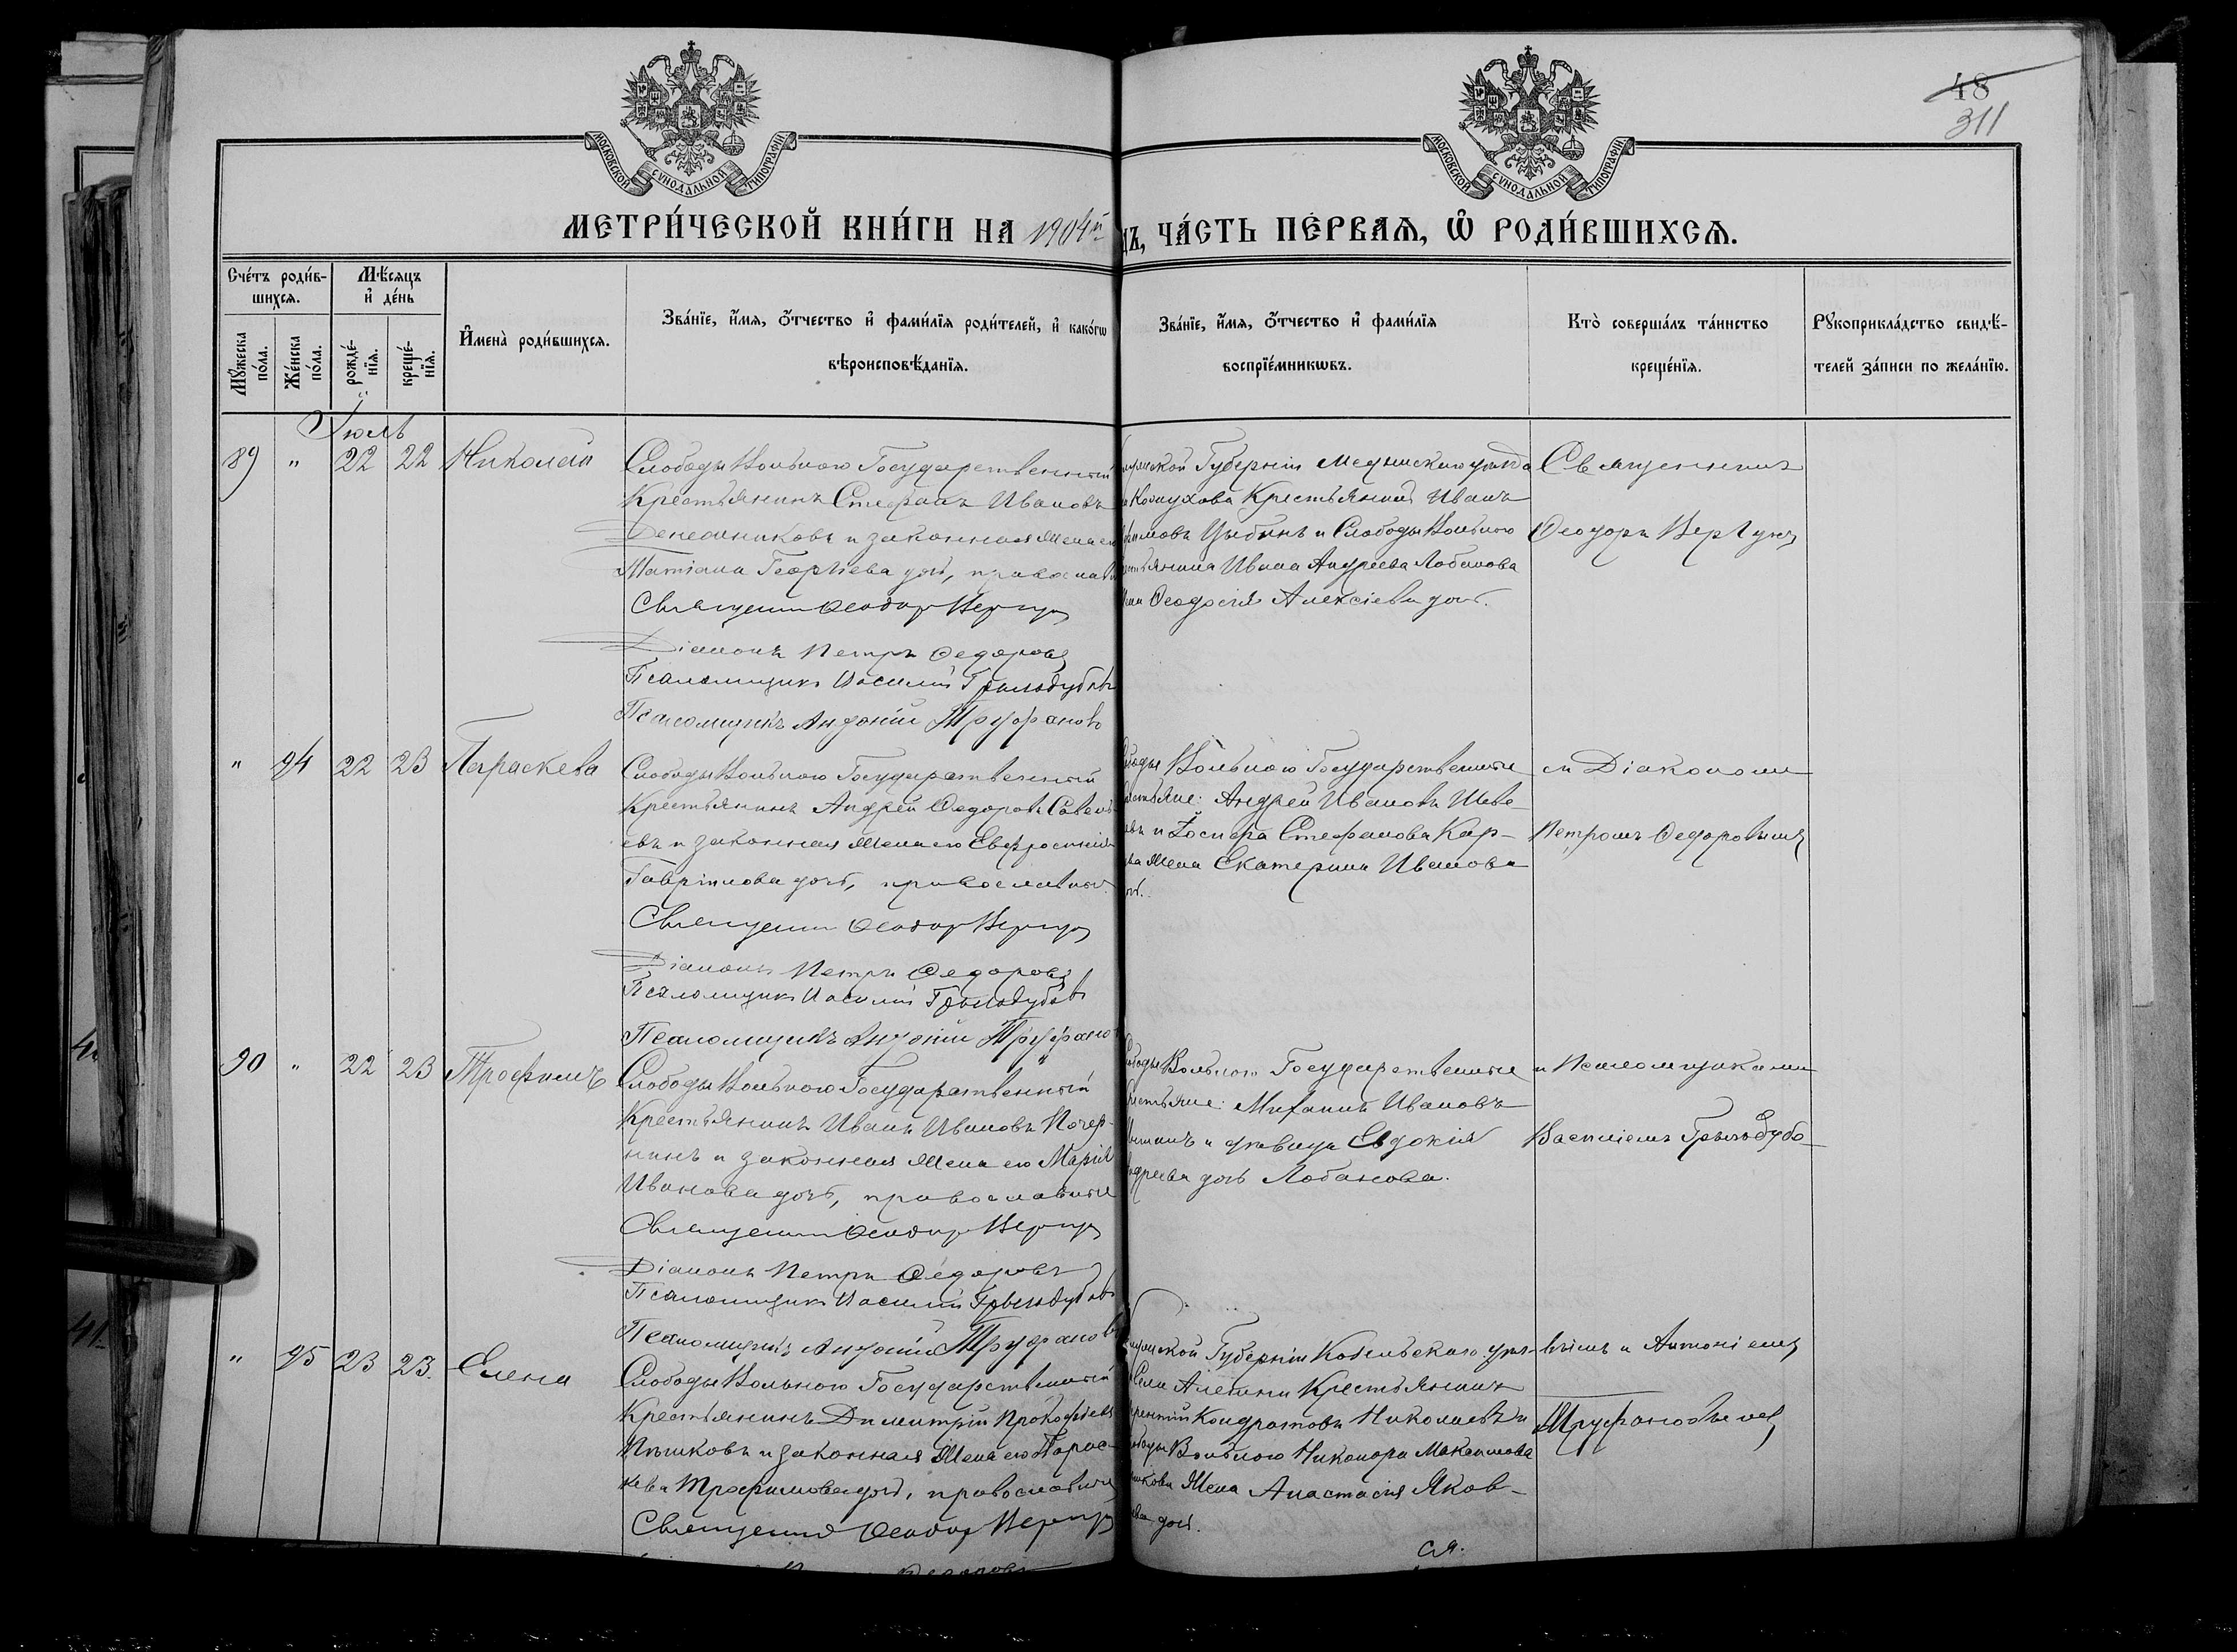 48
311
МОСКОВСКОЙ СУНОДАЛЬНОЙ ТИПОГРАФІИ
МОСКОВСКОЙ СУНОДАЛЬНОЙ ТИПОГРАФІИ
МЕТРИ́ЧЕСКОЙ КНИ́ГИ НА 1904й
ЧА́СТЬ ПЕ́РВАѦ, Ѽ РОДИ́ВШИХСѦ.
Сче́тъ роди́в-
шихсѧ.
Мѣ́сѧцъ
и҆ де́нь
Мꙋ́жеска
по́ла.
Же́нска
по́ла.
рожде́-
нїѧ.
креще́-
нїѧ.
И҆мена̀ роди́вшихсѧ.
Зва́нїе, и҆́мѧ, ѻ҆́тчество и҆ фами́лїѧ роди́телей, и҆ како́гѡ
вѣроисповѣ́данїѧ.
Зва́нїе, и҆́мѧ, ѻ҆́тчество и҆ фами́лїѧ
воспрїе́мникѡвъ.
Кто̀ соверша́лъ та́инство
креще́нїѧ.
Рꙋкоприкла́дство свидѣ́-
телей за́писи по жела́нїю.
Іюль
89 " 22 22 Николай
Слободы Вольного Государственный
Крестьянинъ Стефанъ Ивановъ
и законная жена его
Татіана Георгіева доч.,
Священникъ Ѳеодоръ Вергунъ
Діаконъ Петръ Ѳедоровъ
Псаломщикъ Василій Грыльдубовъ
Псаломщикъ Антоній Труфановъ
Губерніи Медынскаго уѣзда
Крестьянинъ Иванъ
Цыбинъ и Слободы Вольного
Ивана Андреева Лобанова
Ѳеодосія Алексіева доч.
Священникъ
Ѳеодоръ Вергунъ
" 94 22 23 Параскева
Слободы Вольного Государственный
Крестьянинъ Андрей Ѳедоровъ Савель-
евъ и законная жена его Евфросинія
Гавріилова доч., православн.
Священникъ Ѳеодоръ Вергунъ
Діаконъ Петръ Ѳедоровъ
Псаломщикъ Василій Грыльдубовъ
Псаломщикъ Антоній Труфано
Вольного Государственные
Андрей Ивановъ Шеве-
и Іосифа Стефанова Кар-
жена Екатерина Иванова
съ Діакономъ
Петромъ Ѳедоровымъ
90 " 22 23 Трофимъ
Слободы Вольного Государственный
Крестьянинъ Иванъ Ивановъ Почер-
нинъ и законная жена его Марія
Иванова доч., православные
Священникъ Ѳеодоръ Вергунъ
Діаконъ Петръ Ѳедоровъ
Псаломщикъ Василій Грыльдубовъ
Псаломщикъ Антоній Труфанов
Вольного Государственные
Михаилъ Ивановъ
и дѣвица Евдокія
доч. Лобанова.
и Псаломщиками
Василіемъ Грыльдубо-
" 95 23 23. Елена
Слободы Вольного Государственный
Крестьянинъ Димитрій Прокофьевъ
Пѣшковъ и законная жена его Парас-
кева Трофимова доч., православные
Священникъ Ѳеодоръ Вергунъ
Губерніи Козельскаго уѣз-
Крестьянинъ
Кондратовъ Николаевъ и
Вольного Никанора Максимова
жена Анастасія Яков-
доч.
вымъ и Антоніемъ
Труфановымъ
ся.